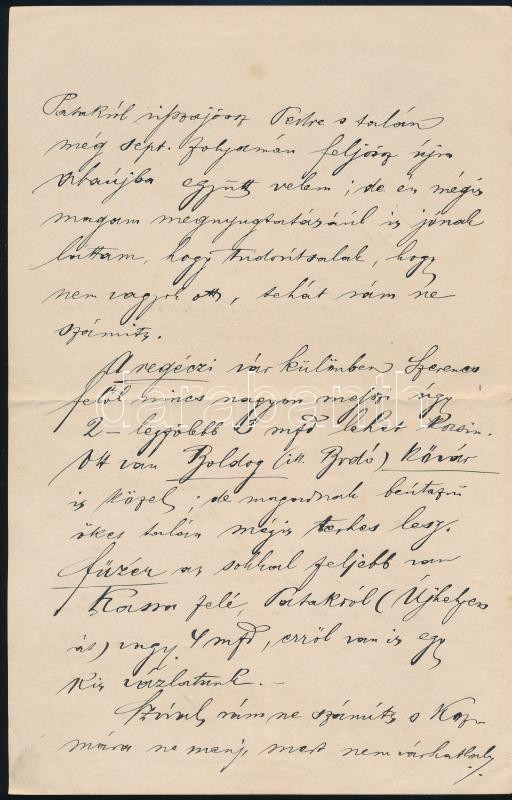 Patakról visszajösz Pestre s talán
még sept. folyamán feljösz újra
Abaújba együtt velem; de én mégis
magam megnyugtatásáúl is jónak
láttam, hogy tudósítsalak, hogy
nem vagyok ott, tehát rám ne
számits.
A regéczi vár különben Szerencs
felől nincs nagyon messze úgy
2 – legfölebb 2 mfd lehet kocsin.
Ott van Boldog (itt. Bodó) Kővár
is közel; de magadnak beútazni
őket talán mégis terhes lesz.
Füzér az sokkal feljebb van
Kassa felé, Patakról (Újhelyen
át) vagy 4 mfd, erről van is egy
kis vázlatunk. –
Szóval rám ne számíts s
mára ne menj, mert nem várhatlak!
darabanth